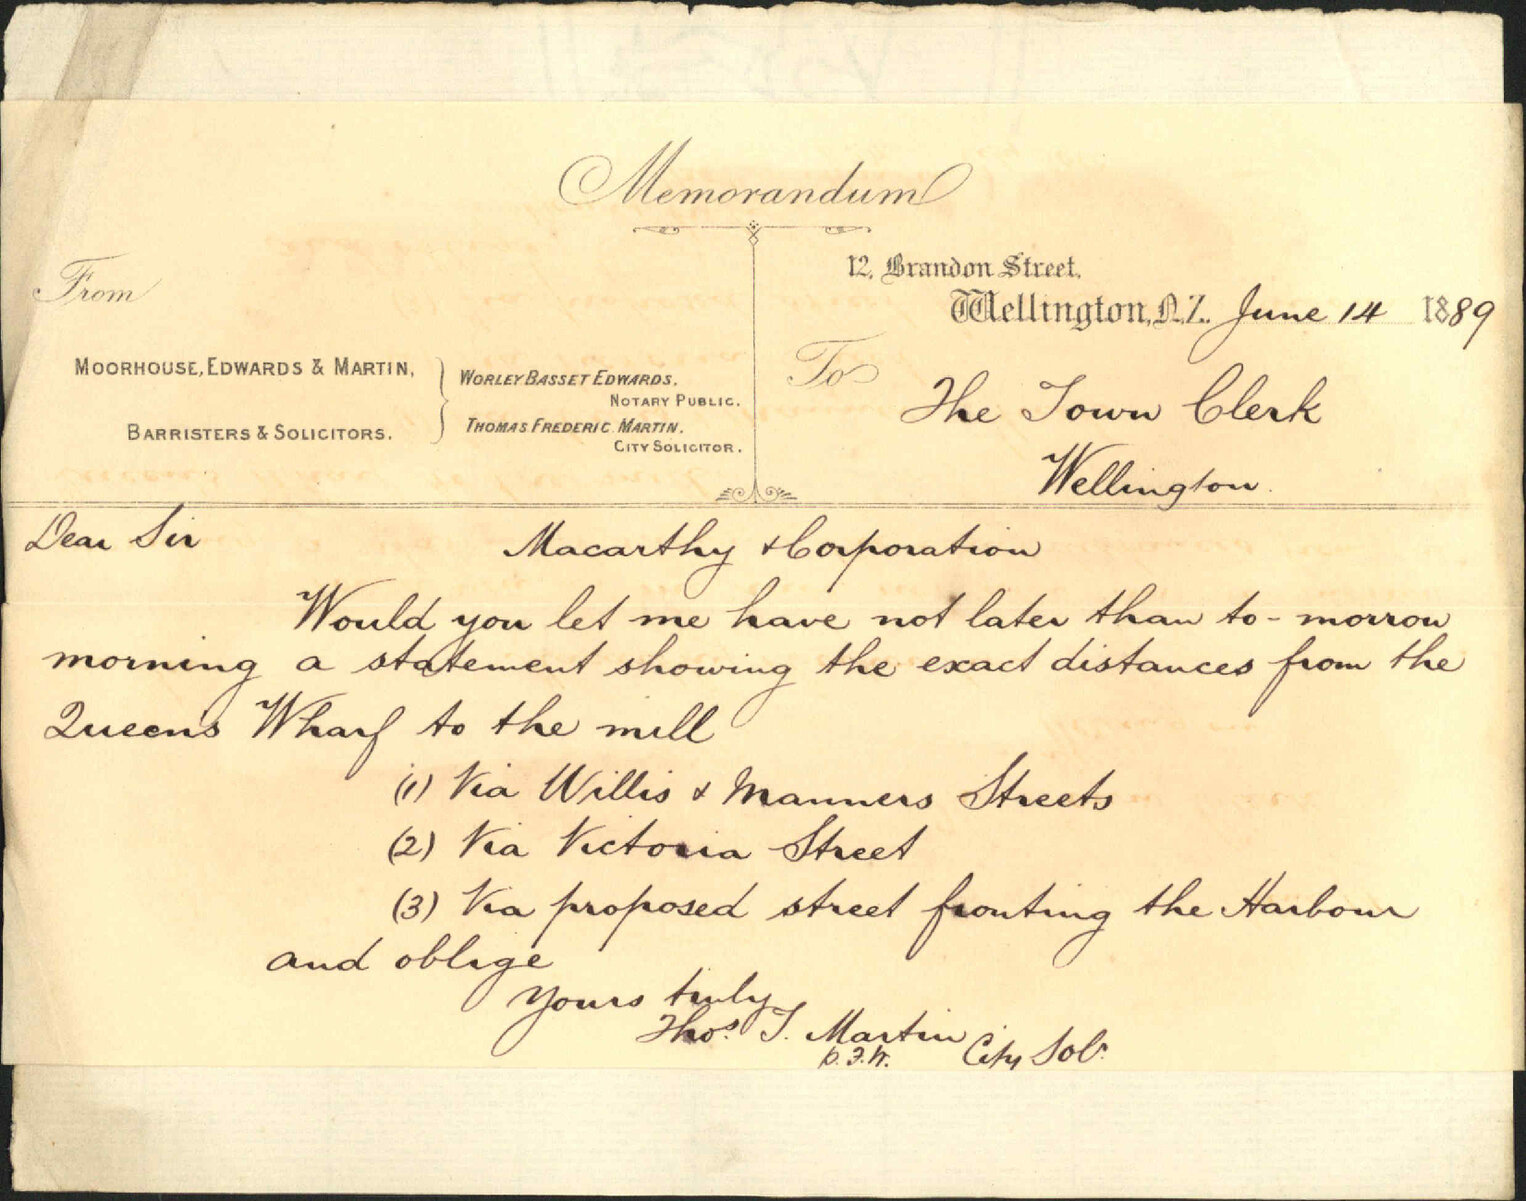 Memorandum
12, Brandon Street,
Wellington, N.Z. June 14 1889
From
MOORHOUSE, EDWARDS & MARTIN,
BARRISTERS & SOLICITORS.
WORLEY BASSET EDWARDS,
NOTARY PUBLIC.
THOMAS FREDERIC MARTIN,
CITY SOLICITOR.
To
The Town Clerk
Wellington.
Dear Sir
Macarthy & Corporation
Would you let me have not later than to-morrow
morning a statement showing the exact distances from the
Queens Wharf to the mill
(1) Via Willis & Manners Streets
(2) Via Victoria Street
(3) Via proposed street fronting the Harbour
and oblige
Yours truly
Thos. F. Martin
City Solr.